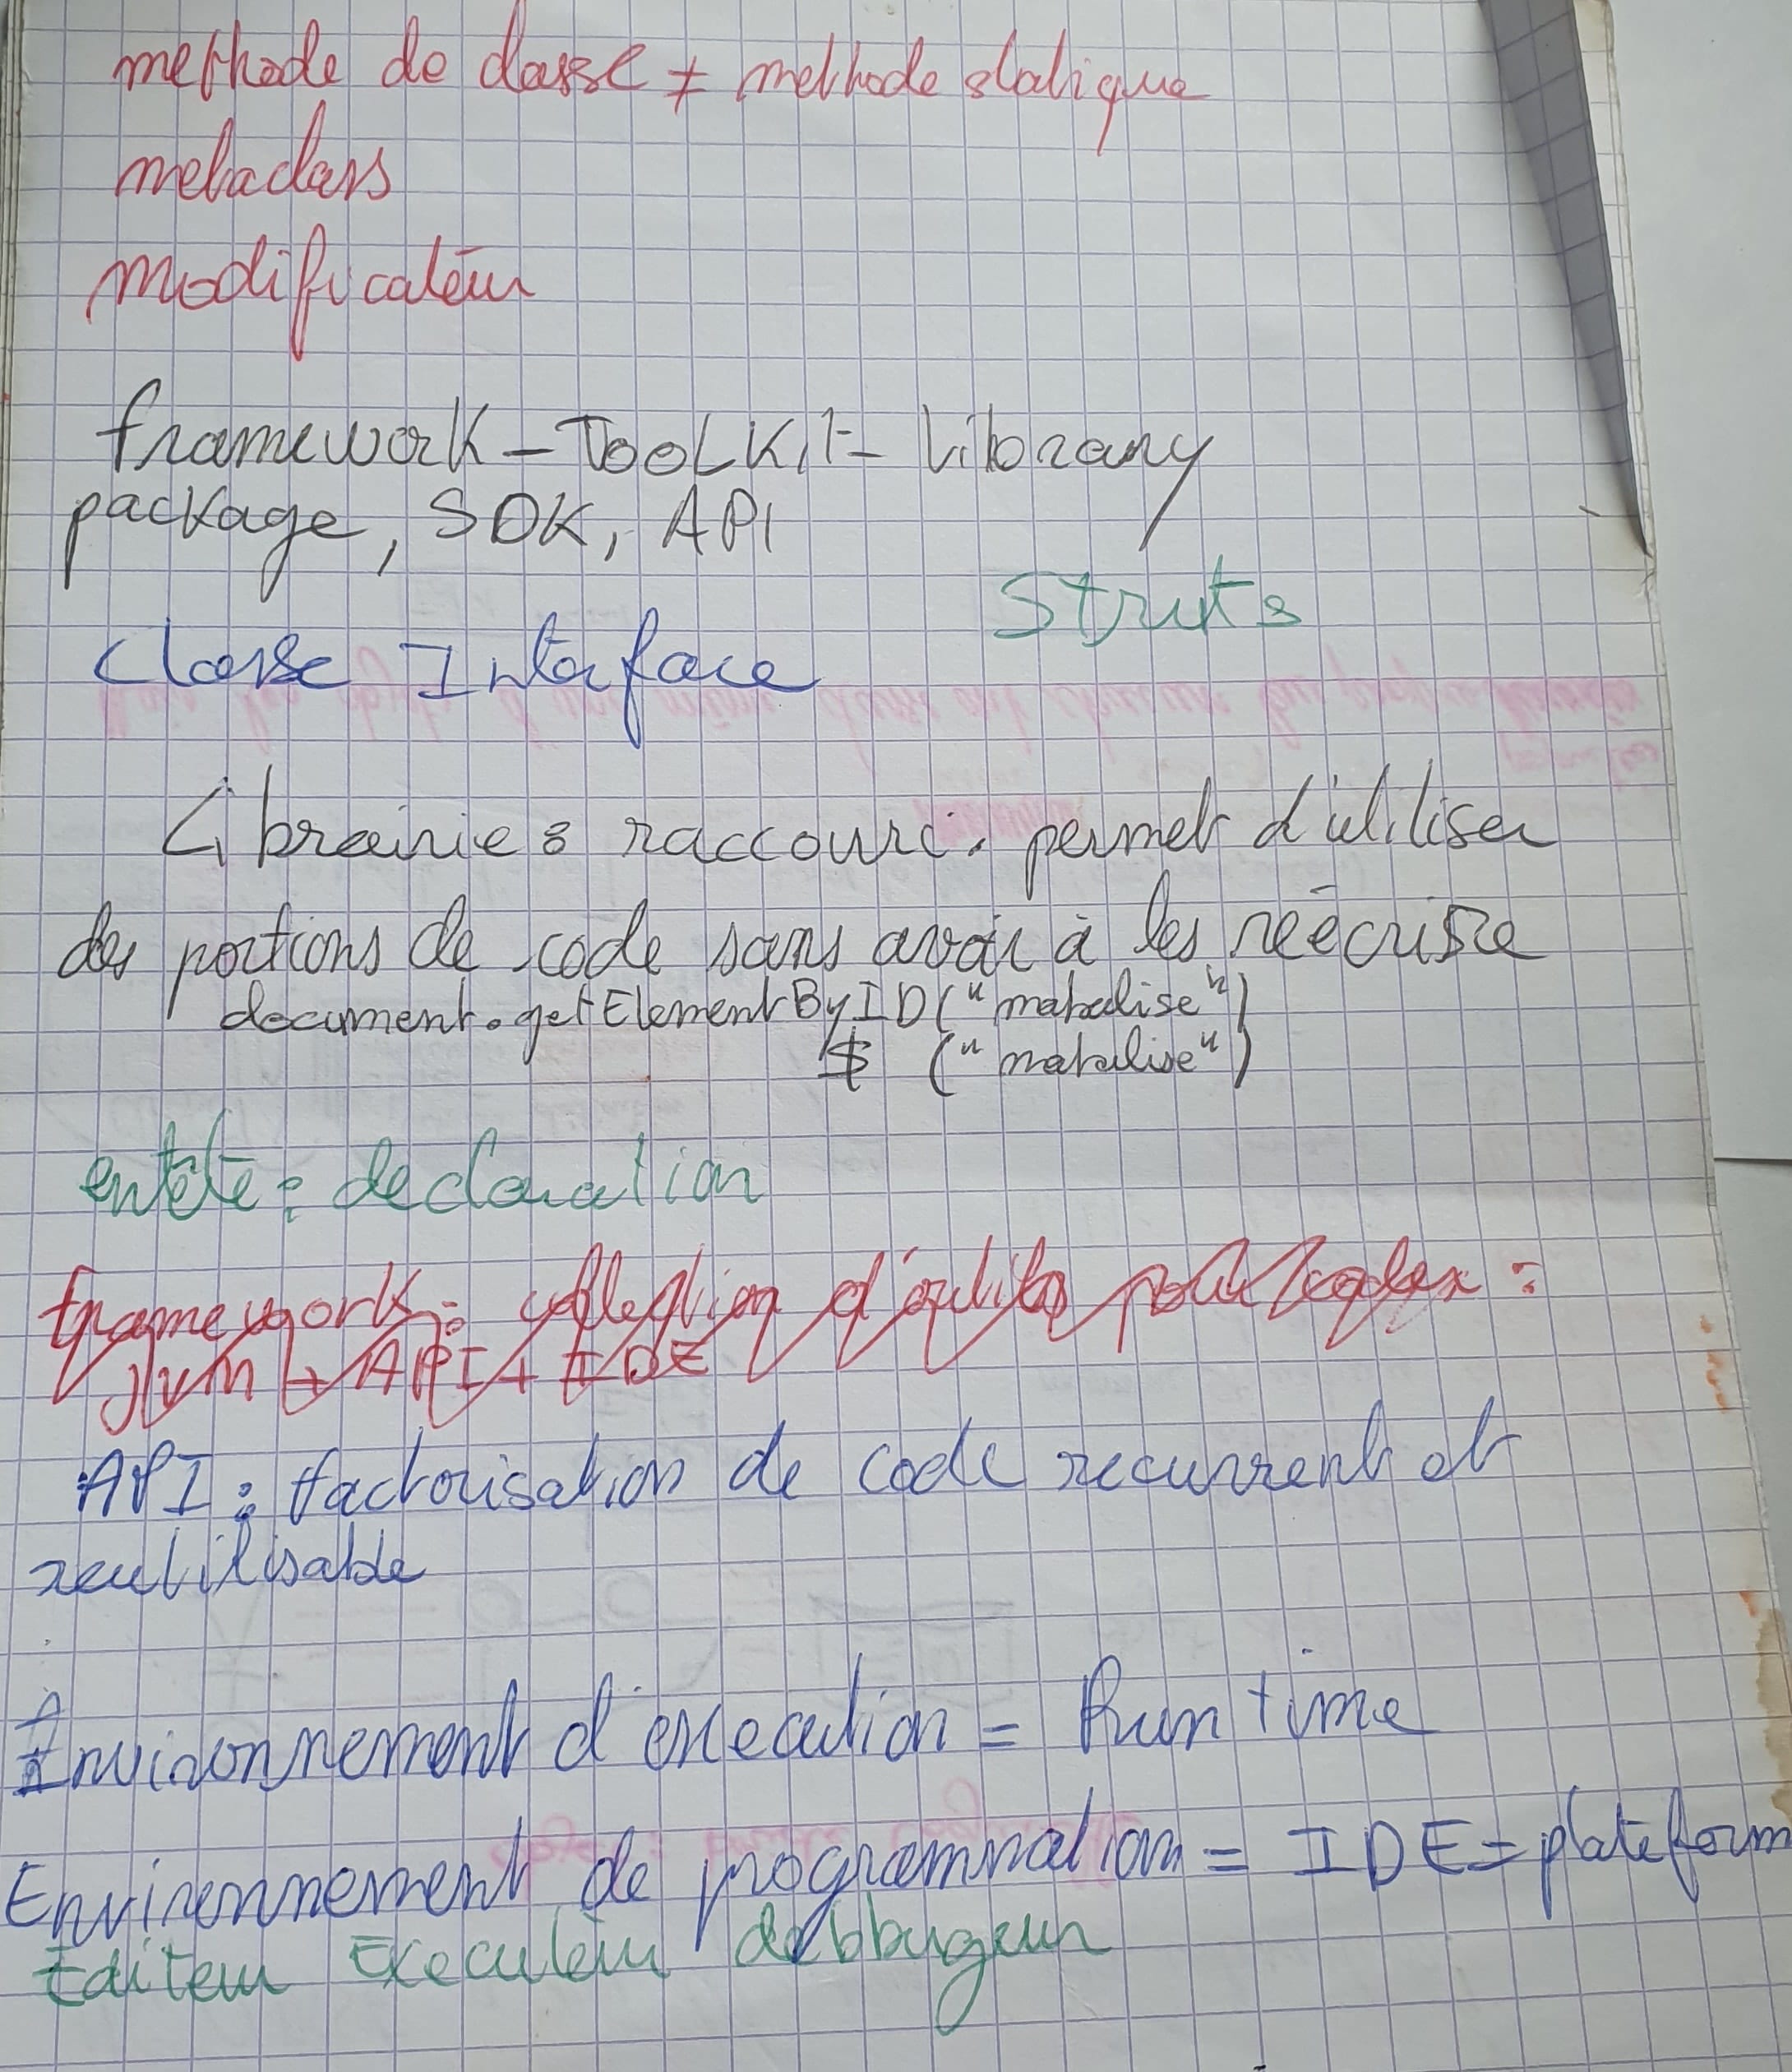 methode de classe ≠ methode statique
metaclass
modificateur
framework - TOOLKit - Library
package, SDK, API
Struts
Classe Interface
Librairie : raccourci. permet d'utiliser
des portions de code sans avoir à les réécrire
document.getElementByID("mabalise")
$ ("mabalise")
entête : declaration
framework : collection d'outils pour coder :
JVM + API + IDE
API : factorisation de code recurrent et
reutilisable
Environnement d'execution = Run time
Environnement de programmation = IDE = plateform
Editeur Executeur debbugeur